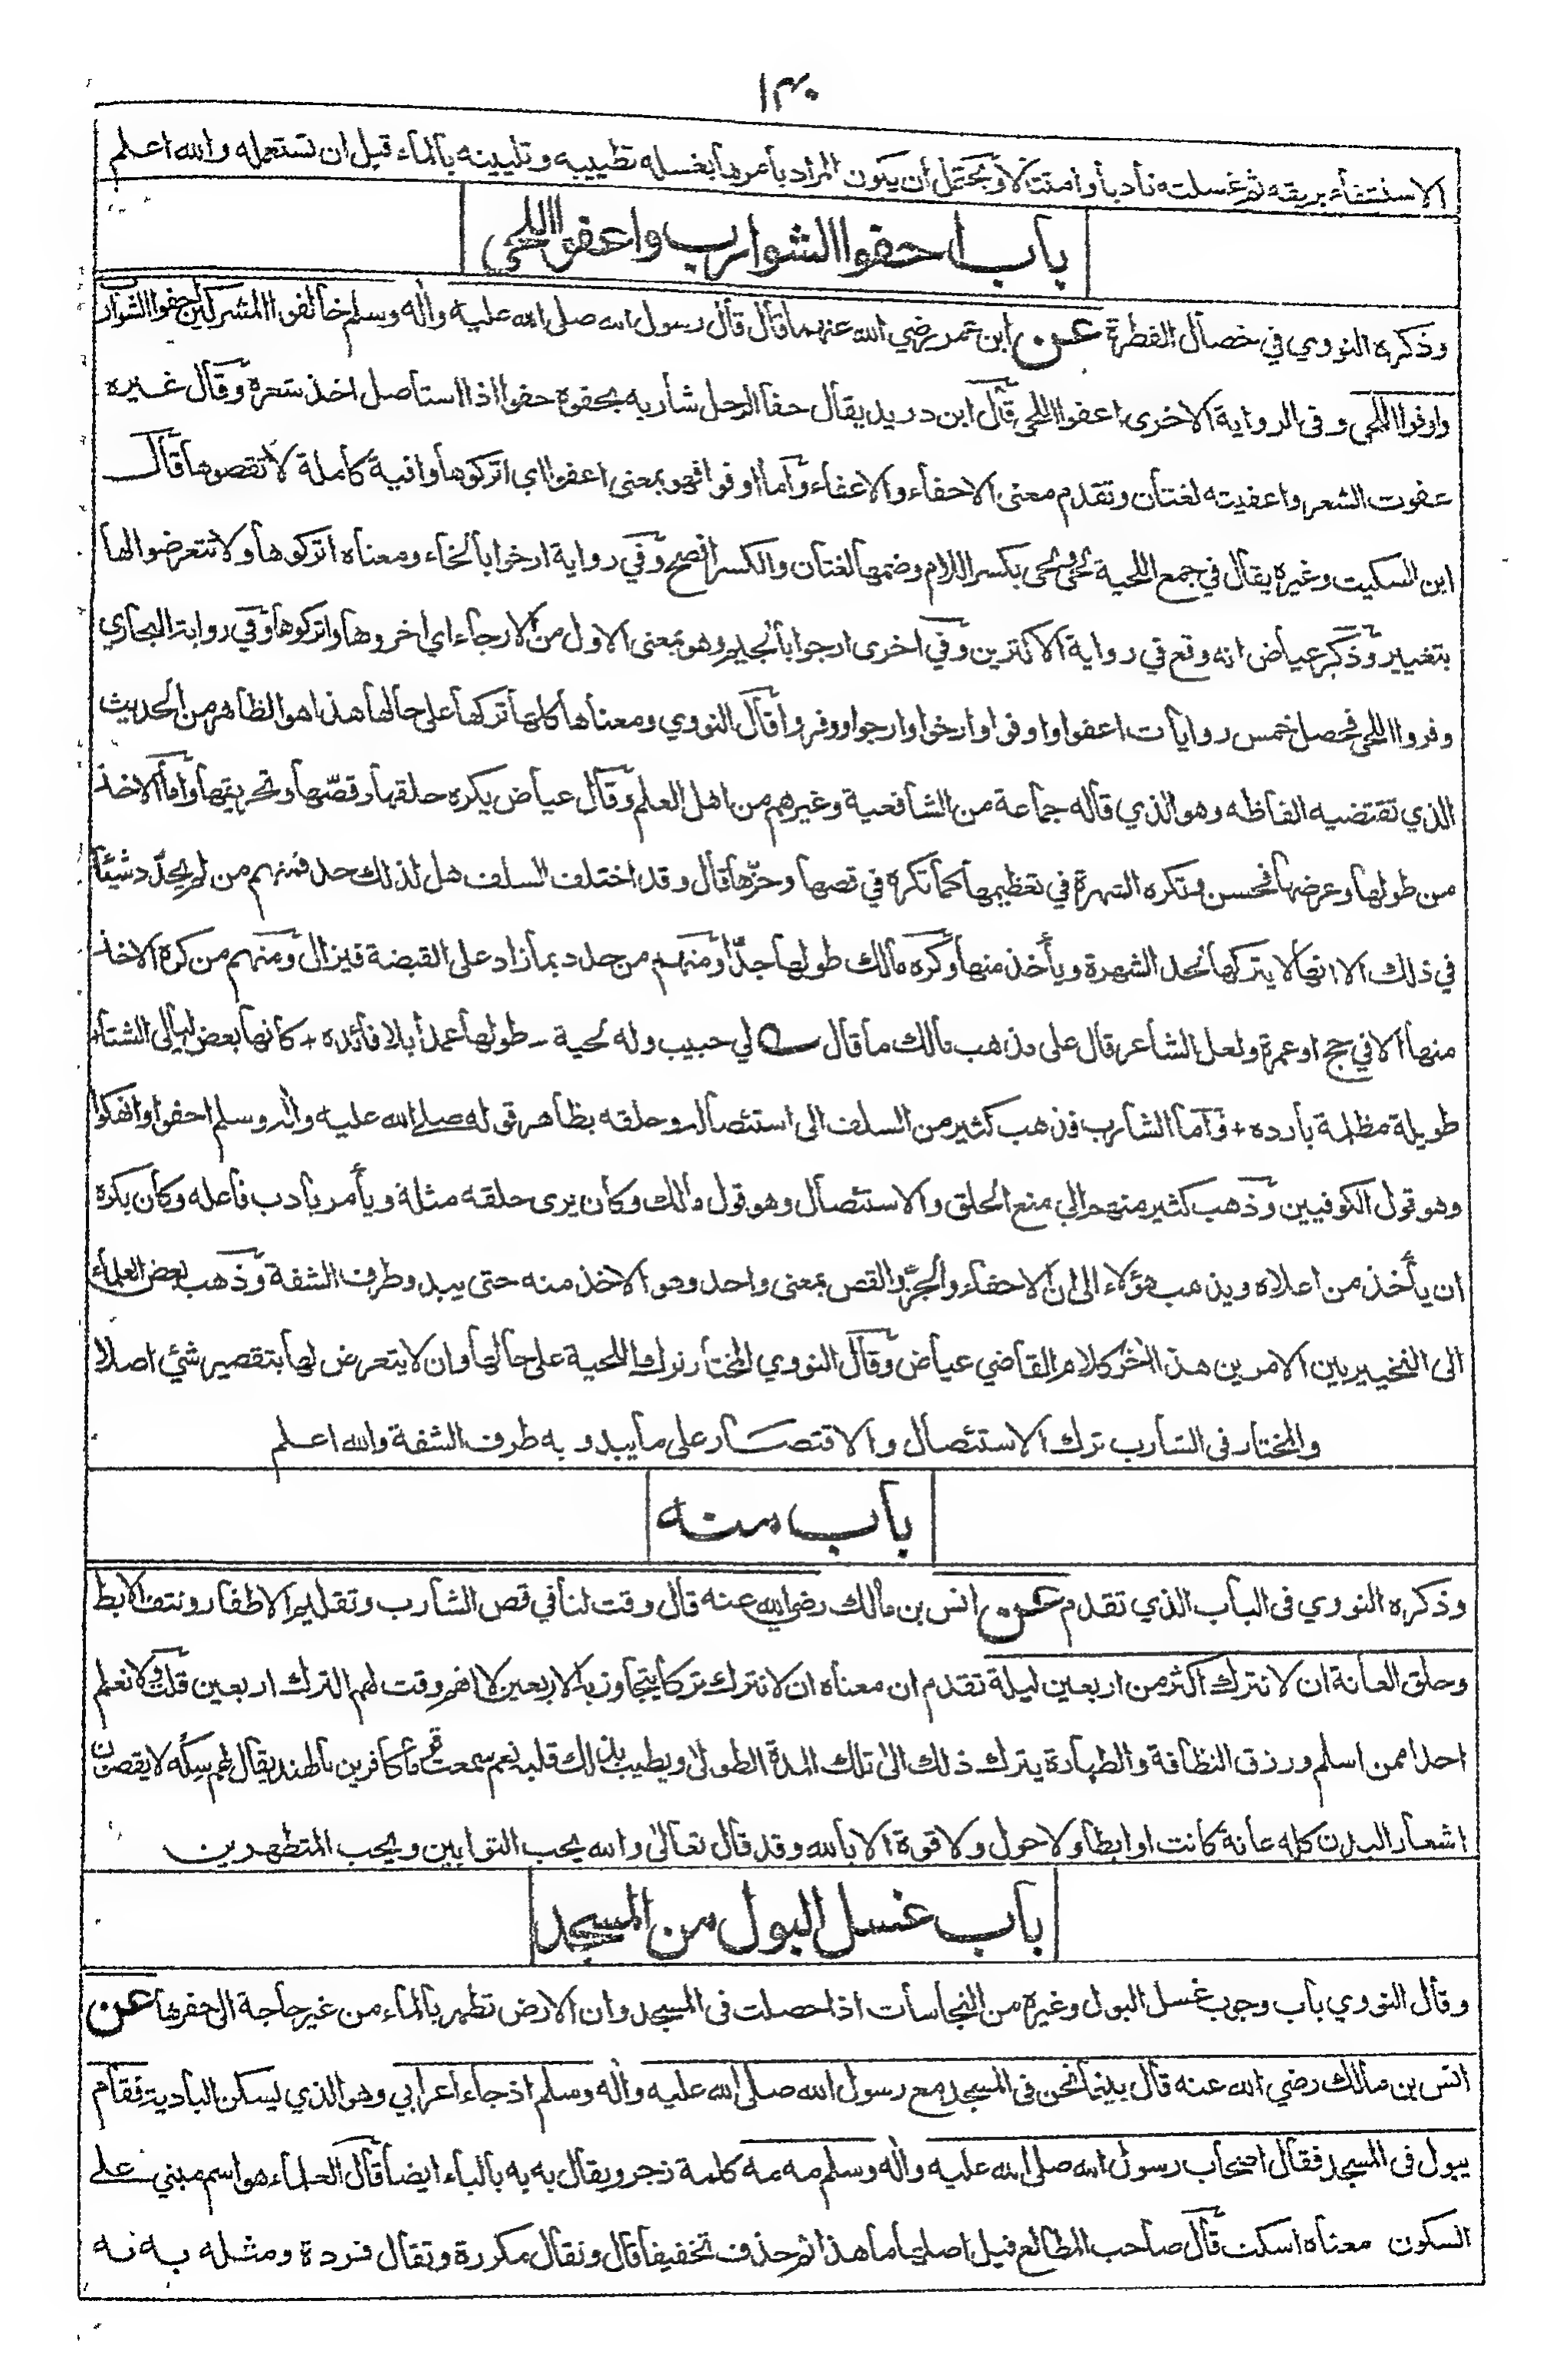 ١٣٠
الاستشفاء بريقه ثم غسلته تأدبا وامتثالا ويحتمل أن يكون المراد بأمرها بغسله تطييبه وتليينه بالماء قبل ان تستعمله والله اعلم
باب احفوا الشوارب واعفوا اللحى
وذكره النووي في خصال الفطرة عن ابن عمر رضي الله عنهما قال قال رسول الله صلى الله عليه وآله وسلم خالفوا المشركين احفوا الشوارب
واوفوا اللحى وفى الرواية الاخرى اعفوا اللحى قال ابن دريد يقال حفا الرجل شاربه يحفوه حفوا اذا استأصل اخذ شعره وقال غيره
عفوت الشعر واعفيته لغتان وتقدم معنى الاحفاء والاعفاء وأما اوفوا فهو بمعنى اعفوا اي اتركوها وافية كاملة لا تقصوها قال
ابن السكيت وغيره يقال في جمع اللحية لحى ولحى بكسر اللام وضمها لغتان والكسر افصح وفي رواية ارخوا بالخاء ومعناه اتركوها ولا تتعرضوا لها
بتغيير وذكر عياض انه وقع في رواية الاكثرين وفي اخرى ارجوا بالجيم وهو بمعنى الاول من الارجاء اي اخروها واتركوها وفي رواية البخاري
وفروا اللحى فحصل خمس روايات اعفوا واوفوا وارخوا وارجوا ووفروا قال النووي ومعناها كلها تركها على حالها هذا هو الظاهر من الحديث
الذي تقتضيه الفاظه وهو الذي قاله جماعة من الشافعية وغيرهم من اهل العلم وقال عياض يكره حلقها وقصّها وتحريقها وأما الاخذ
من طولها وعرضها فحسن وتكره الشهرة في تعظيمها كما تكره في قصها وجزّها قال وقد اختلف السلف هل لذلك حد فمنهم من لم يحدّد شيئا
في ذلك الا انها لا يتركها لحد الشهرة ويأخذ منها وكره مالك طولها جدّا ومنهم من حدد بما زاد على القبضة فيزال ومنهم من كره الاخذ
منها الا في حج او عمرة ولعل الشاعر قال على مذهب مالك ما قال لي حبيب وله لحية - طولها عمدا بلا فائده + كأنها بعض ليالي الشتاء
طويلة مظلمة بارده + وأما الشارب فذهب كثير من السلف الى استئصاله وحلقه بظاهر قوله صلى الله عليه وآله وسلم احفوا وانهكوا
وهو قول الكوفيين وذهب كثير منهم الى منع الحلق والاستئصال وهو قول مالك وكان يرى حلقه مثلة ويأمر بأدب فاعله وكان يكره
ان يأخذ من اعلاه ويذهب هؤلاء الى ان الاحفاء والجزّ والقص بمعنى واحد وهو الاخذ منه حتى يبدو طرف الشفة وذهب بعض العلماء
الى التخيير بين الامرين هذا آخر كلام القاضي عياض وقال النووي المختار ترك اللحية على حالها وان لا يتعرض لها بتقصير شئ اصلا
والمختار في الشارب ترك الاستئصال والاقتصار على ما يبدو به طرف الشفة والله اعلم
باب منه
وذكره النووي في الباب الذي تقدم عن انس بن مالك رضي الله عنه قال وقت لنا في قص الشارب وتقليم الاظفار ونتف الابط
وحلق العانة ان لا نترك اكثر من اربعين ليلة تقدم ان معناه ان لا نترك تركا يتجاوز به الاربعين لا انهم وقت لهم الترك اربعين قلت ولا نعلم
احدا ممن اسلم ورزق النظافة والطهارة يترك ذلك الى تلك المدة الطولى ويطيب بذلك قلبه نعم سمعت قوما كافرين بالهند يقال لهم سكه لا يقصون
اشعار البدن كله عانة كانت او ابطا ولا حول ولا قوة الا بالله وقد قال تعالى والله يحب التوابين ويحب المتطهرين
باب غسل البول من المسجد
وقال النووي باب وجوب غسل البول وغيره من النجاسات اذا حصلت في المسجد وان الارض تطهر بالماء من غير حاجة الى حفرها عن
انس بن مالك رضي الله عنه قال بينما نحن في المسجد مع رسول الله صلى الله عليه وآله وسلم اذ جاء اعرابي وهو الذي يسكن البادية فقام
يبول في المسجد فقال اصحاب رسول الله صلى الله عليه وآله وسلم مه مه كلمة زجر ويقال به به بالباء ايضا قال العلماء هو اسم مبني على
السكون معناه اسكت قال صاحب المطالع قيل اصلها ما هذا ثم حذف تخفيفا قال وتقال مكررة وتقال فردة ومثله به به